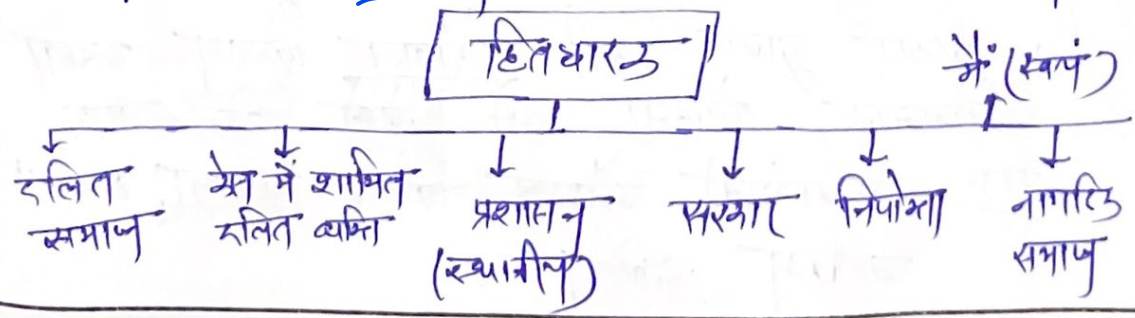 हितधारक
मैं (स्वयं)
दलित समाज
मेस में शामिल दलित व्यक्ति
प्रशासन (स्थानीय)
सरकार
नियोक्ता
नागरिक समाज